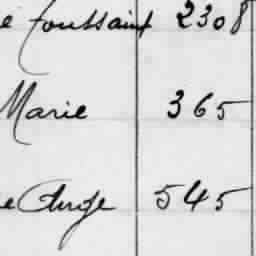 e Toussaint 2308
Marie 365
e Ange 545